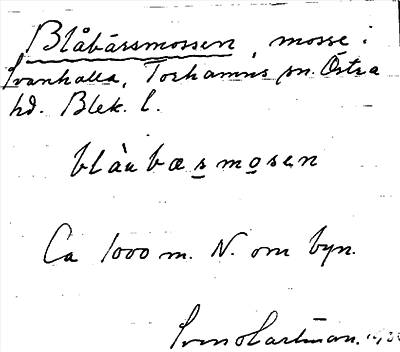 Blåbärsmossen, mosse i
Ivanhalla, Torhamns sn. Östra
hd. Blek. l.
blàubæsmosen
Ca 1000 m. N. om byn.
Sven Hartman.